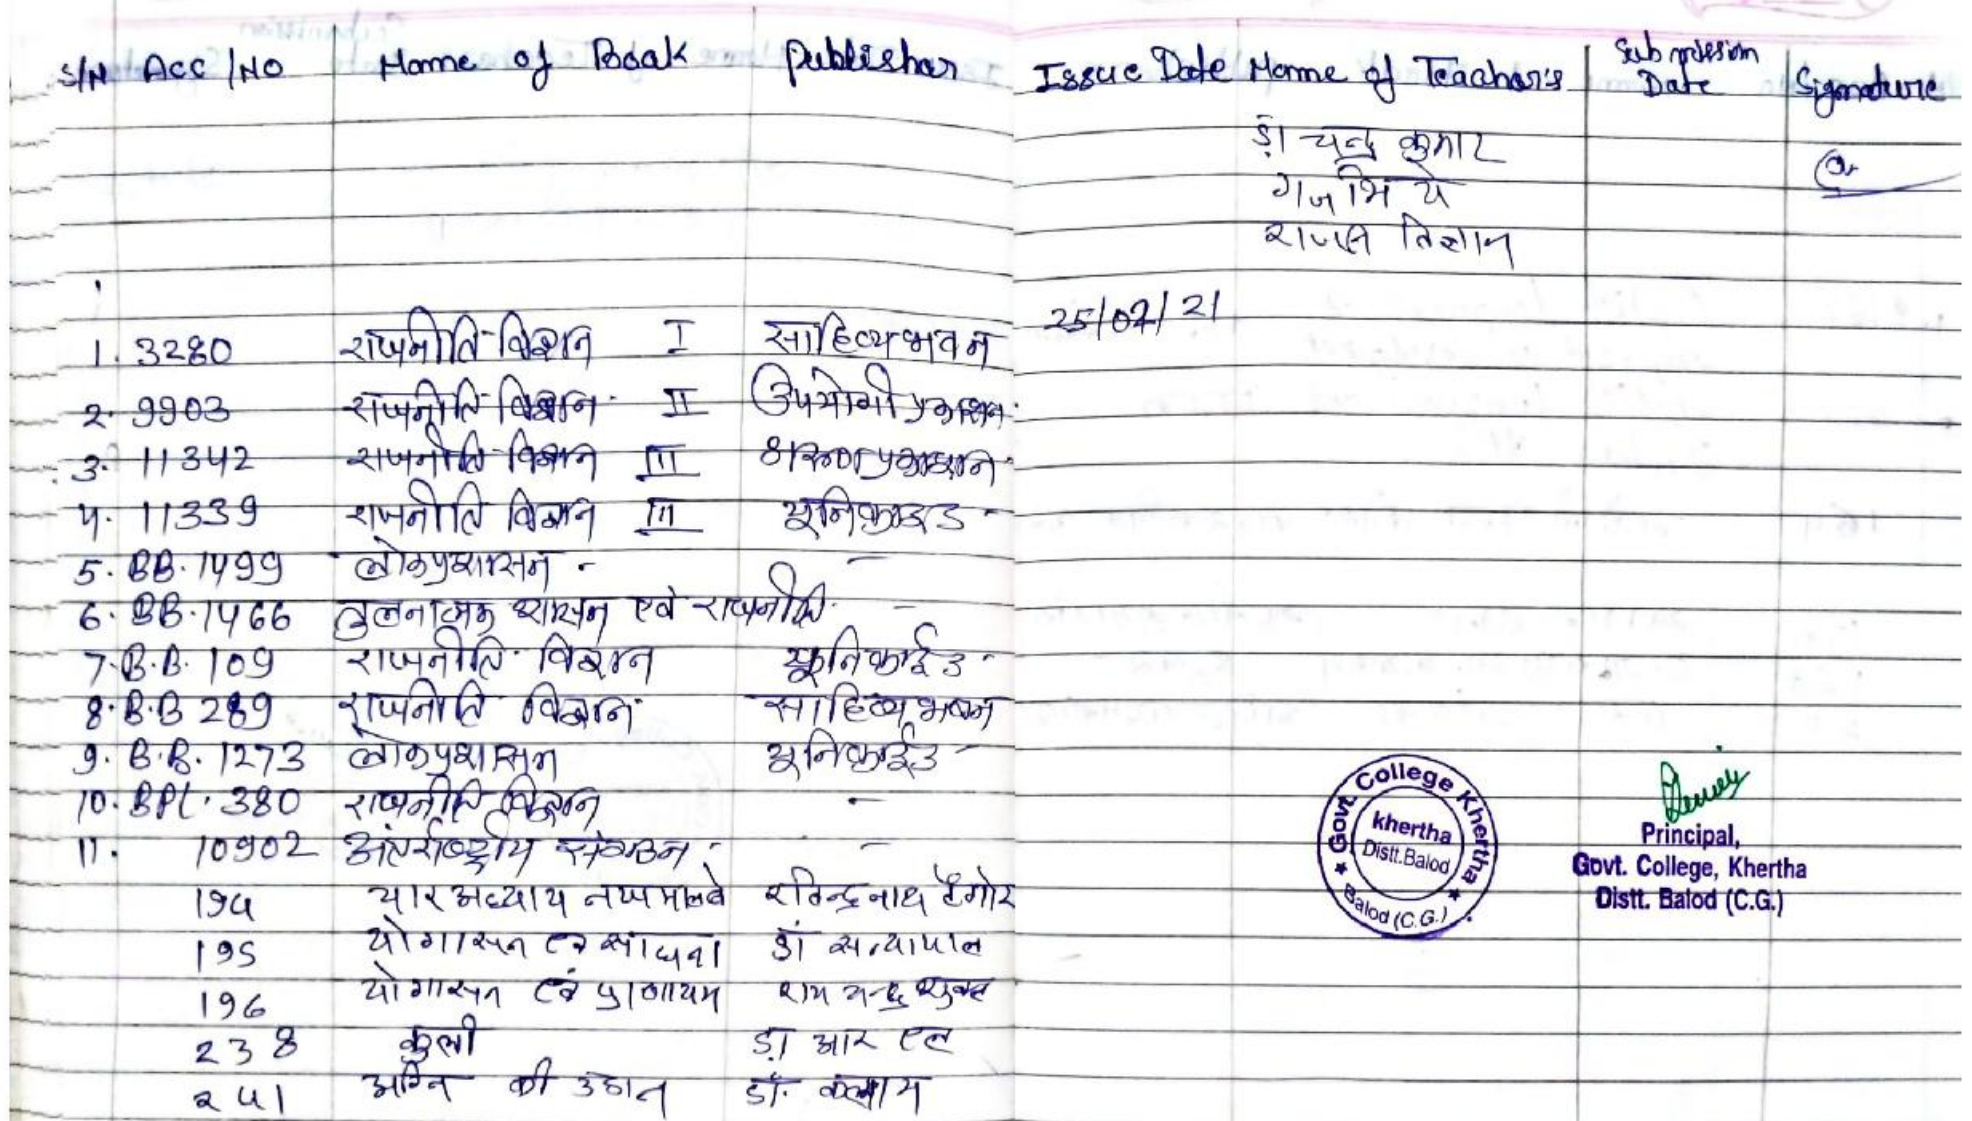 S/N Acc/No Name of Book Publishar Issue Date Name of Teachar's Submission Date Signature
डॉ चन्द्र कुमार
गजभिये
विज्ञान
25/02/21
1. 3280 राजनीति विज्ञान I साहित्य भवन
2. 9903 राजनीति विज्ञान II उपयोगी प्रकाशन
3. 11342 राजनीति विज्ञान III प्रकाशन
4. 11339 राजनीति विज्ञान III यूनिफाइड
5. BB. 1499 लोकप्रशासन - -
6. BB. 1466 तुलनात्मक शासन एवं राजनीति -
7. B.B. 109 राजनीति विज्ञान यूनिफाईड
8. B.B 289 राजनीति विज्ञान साहित्य भवन
9. B.B. 1273 लोकप्रशासन यूनिफाईड
10. BPL. 380 राजनीति विज्ञान -
11. 10902 अंतर्राष्ट्रीय संगठन -
194 चार अध्याय रविन्द्रनाथ टैगोर
195 योगासन एवं साधना डॉ सत्यापाल
196 योगासन एवं प्राणायम राम चन्द्र शुक्ल
238 कुली डॉ आर एल
241 अग्नि की उडान डॉ. कलाम
Govt. College Khertha
khertha
Distt. Balod
Balod (C.G.)
Principal,
Govt. College, Khertha
Distt. Balod (C.G.)